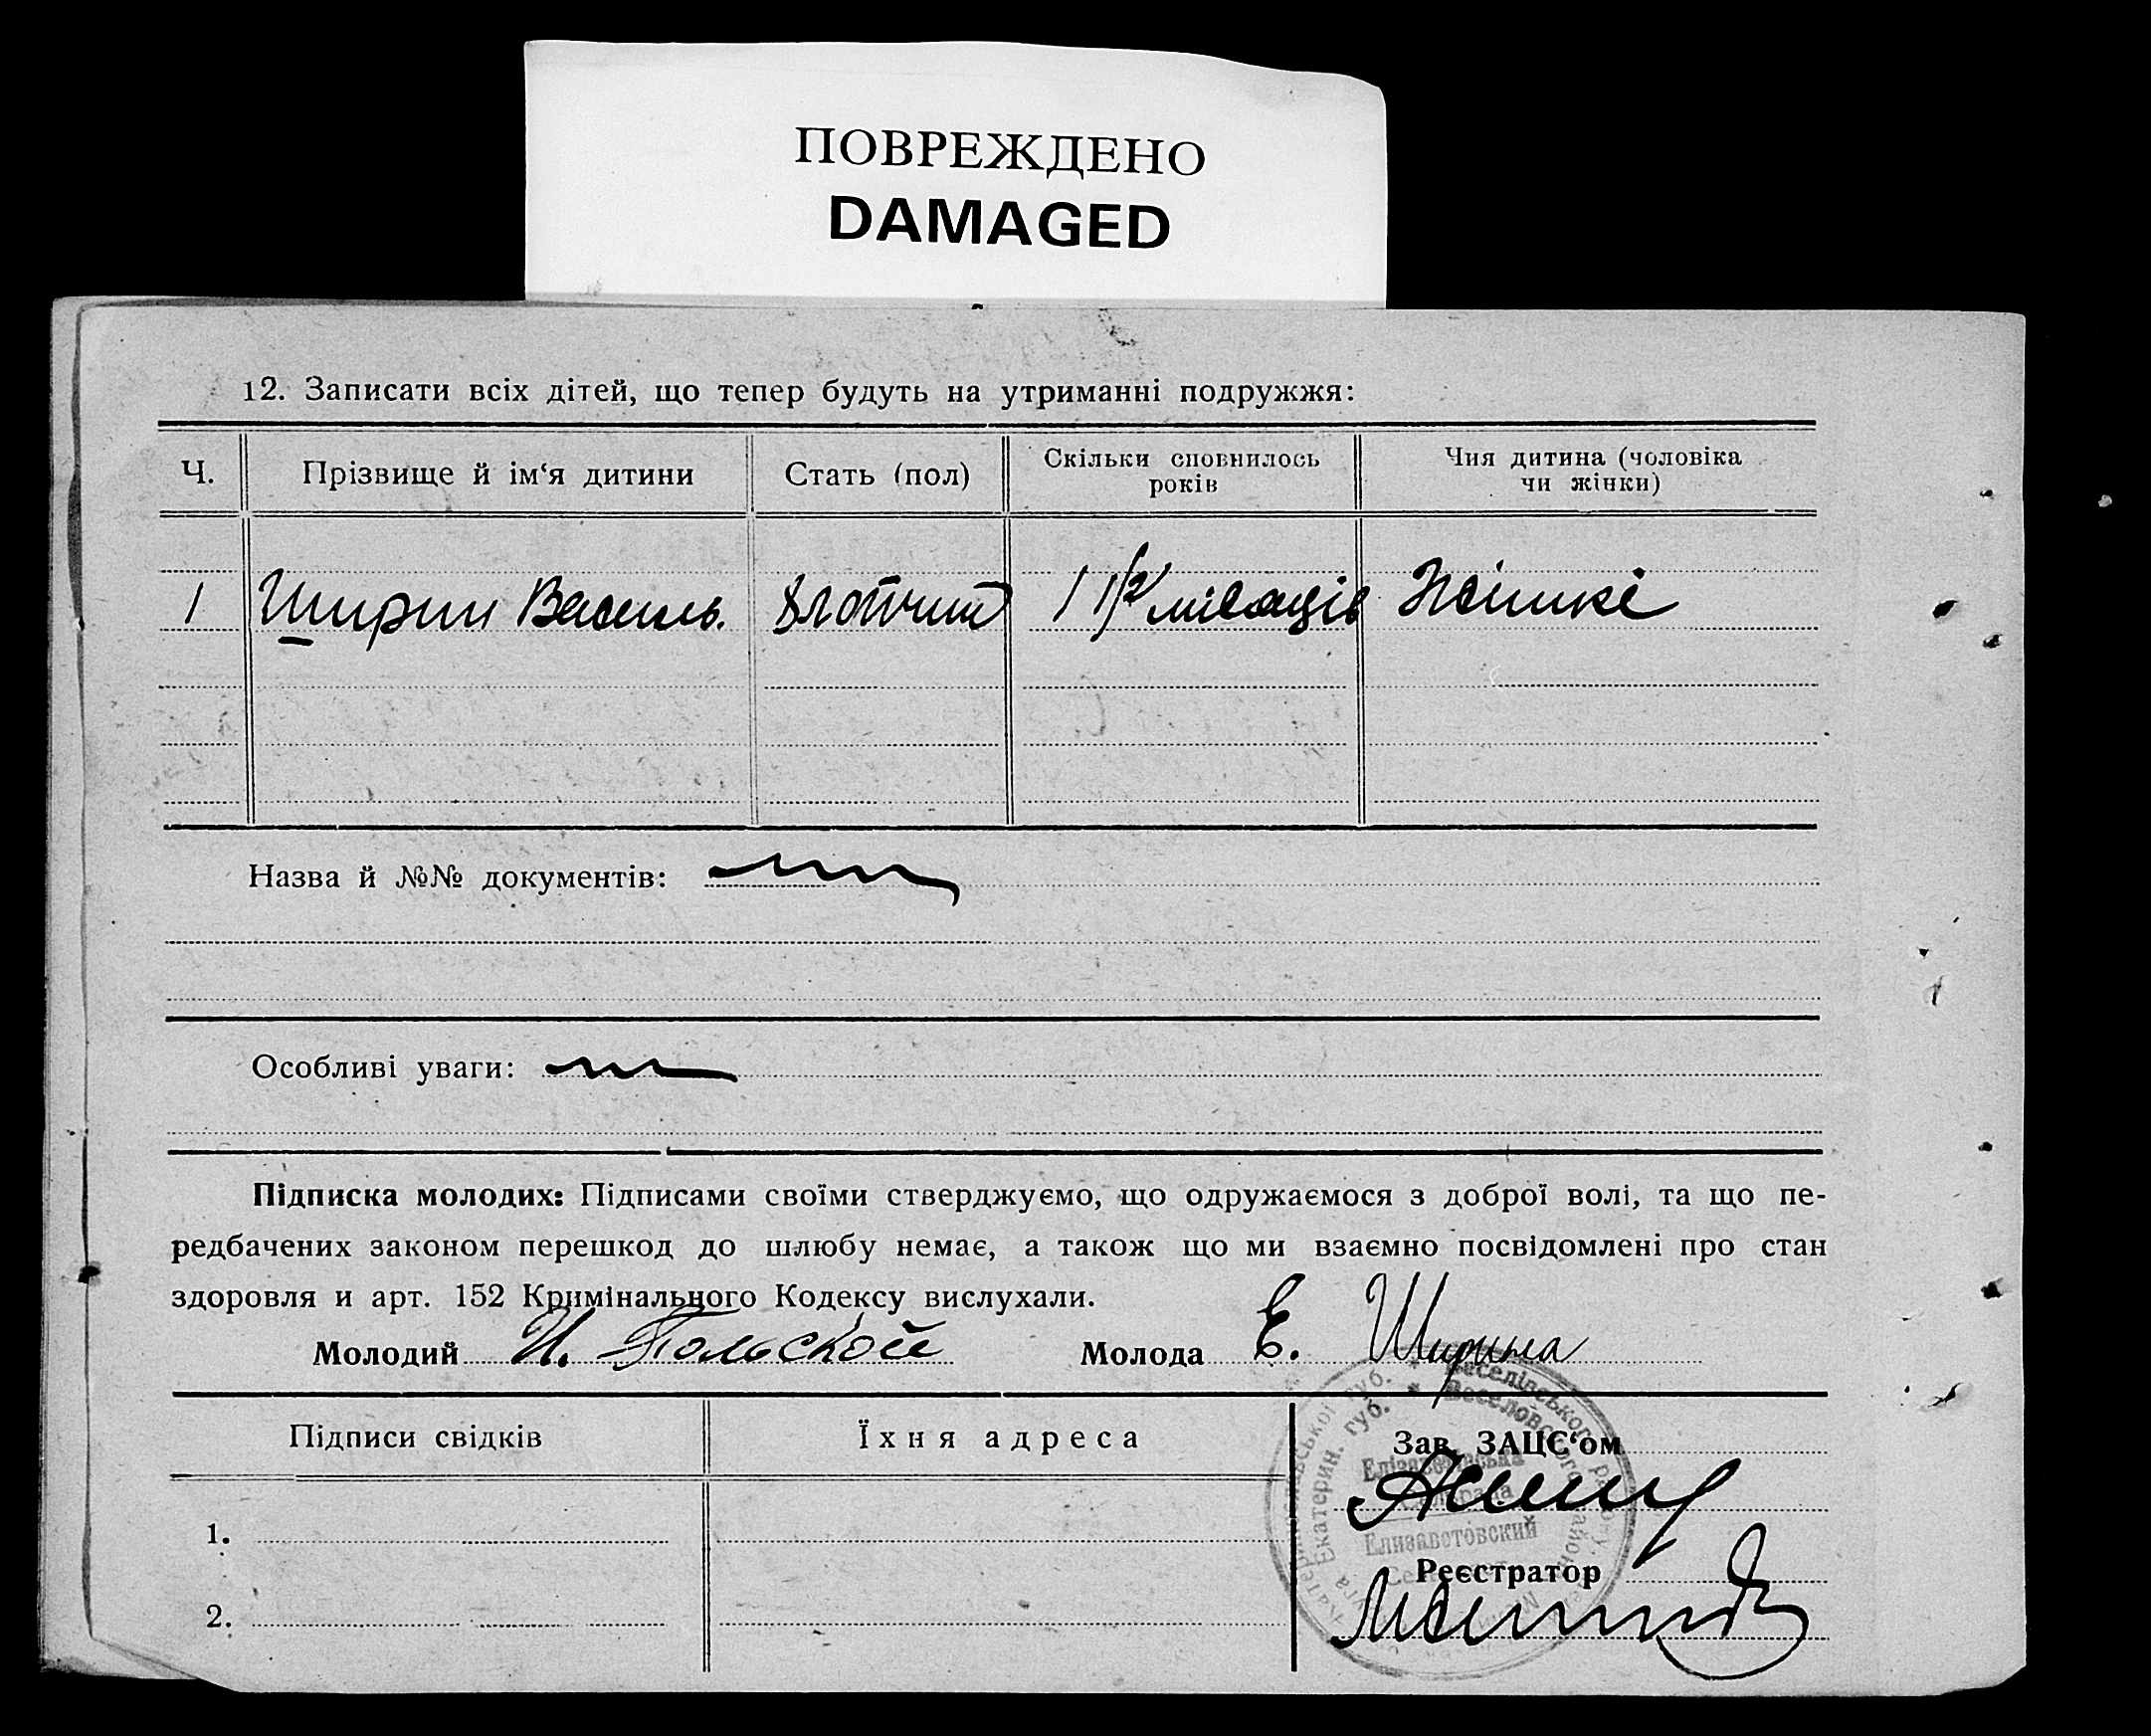 ПОВРЕЖДЕНО
DAMAGED
12. Записати всіх дітей, що тепер будуть на утриманні подружжя:
Ч. Прізвище й ім‘я дитини Стать (пол) Скільки сповнилось років Чия дитина (чоловіка чи жінки)
1 Ширин Василь. Хлопчик 1 1/2 місяців Жінки
Назва й №№ документів:
Особливі уваги:
Підписка молодих: Підписами своїми стверджуємо, що одружаємося з доброї волі, та що пе-
редбачених законом перешкод до шлюбу немає, а також що ми взаємно посвідомлені про стан
здоровля и арт. 152 Кримінального Кодексу вислухали.
Молодий И. Польской Молода Е. Ширина
Підписи свідків Їхня адреса Зав. ЗАЦС‘ом
Елизаветовский
1.
Реєстратор
2.